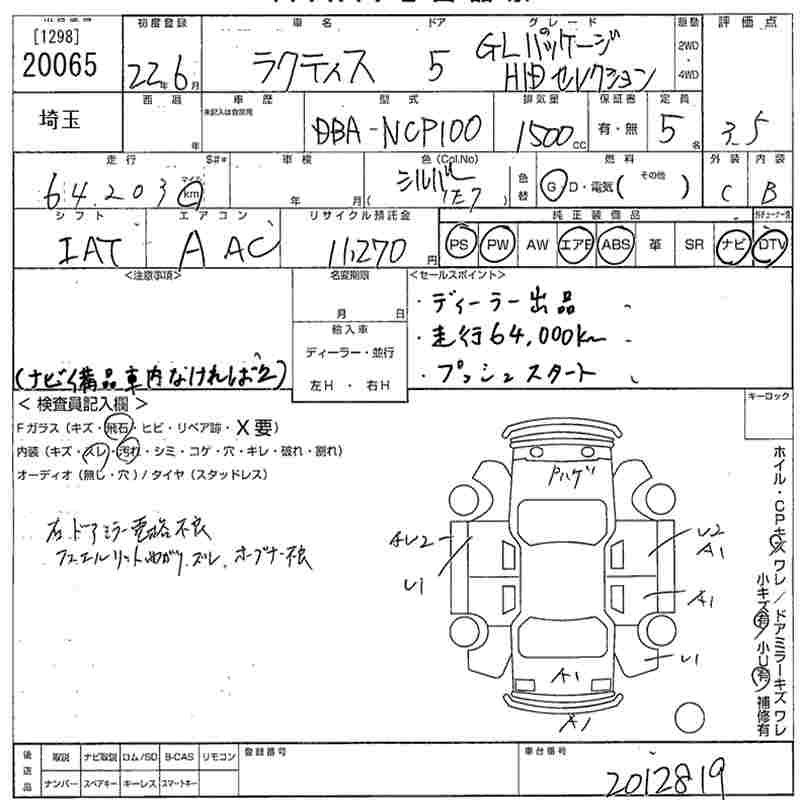 [1298]
20065
初度登録
22年6月
車名
ラクティス
ドア
5
グレード
GLパッケージ
HIDセレクション
駆動
2WD
・
4WD
評価点
3.5
埼玉
年
車歴
未記入は自家用
型式
DBA-NCP100
排気量
1500cc
保証書
有・無
定員
5名
走行
64,203
マイル
km
S#*
車検
年 月
色(Col.No)
シルバー
色替
燃料
G D・電気( その他 )
外装
C
内装
B
シフト
IAT
エアコン
AAC
リサイクル預託金
11,270円
純正装備品
PS PW AW エアB ABS 革 SR ナビ DTV
<注意事項>
(ナビく備品車内なければ乞)
名変期限
月 日
輸入車
ディーラー・並行
左H ・ 右H
<セールスポイント>
・ディーラー出品
・走行64,000km
・プッシュスタート
キーロック
<検査員記入欄>
Fガラス(キズ・飛石・ヒビ・リペア跡・X要)
内装(キズ・スレ・汚れ・シミ・コゲ・穴・キレ・破れ・割れ)
オーディオ(無し・穴)/タイヤ(スタッドレス)
右ドアミラー電格不良
フューエルリットめがり.ズレ.オープナー不良
Pハゲ
AU2
U1
U2
A1
A1
U1
A1
A1
ホイル・CPキズ ワレ/ドアミラーキズ ワレ
小キズ有/小U有/補修有
後送品
取説 ナビ取説 ロム/SD B-CAS リモコン
ナンバー スペアキー キーレス スマートキー
登録番号
車台番号
2012819